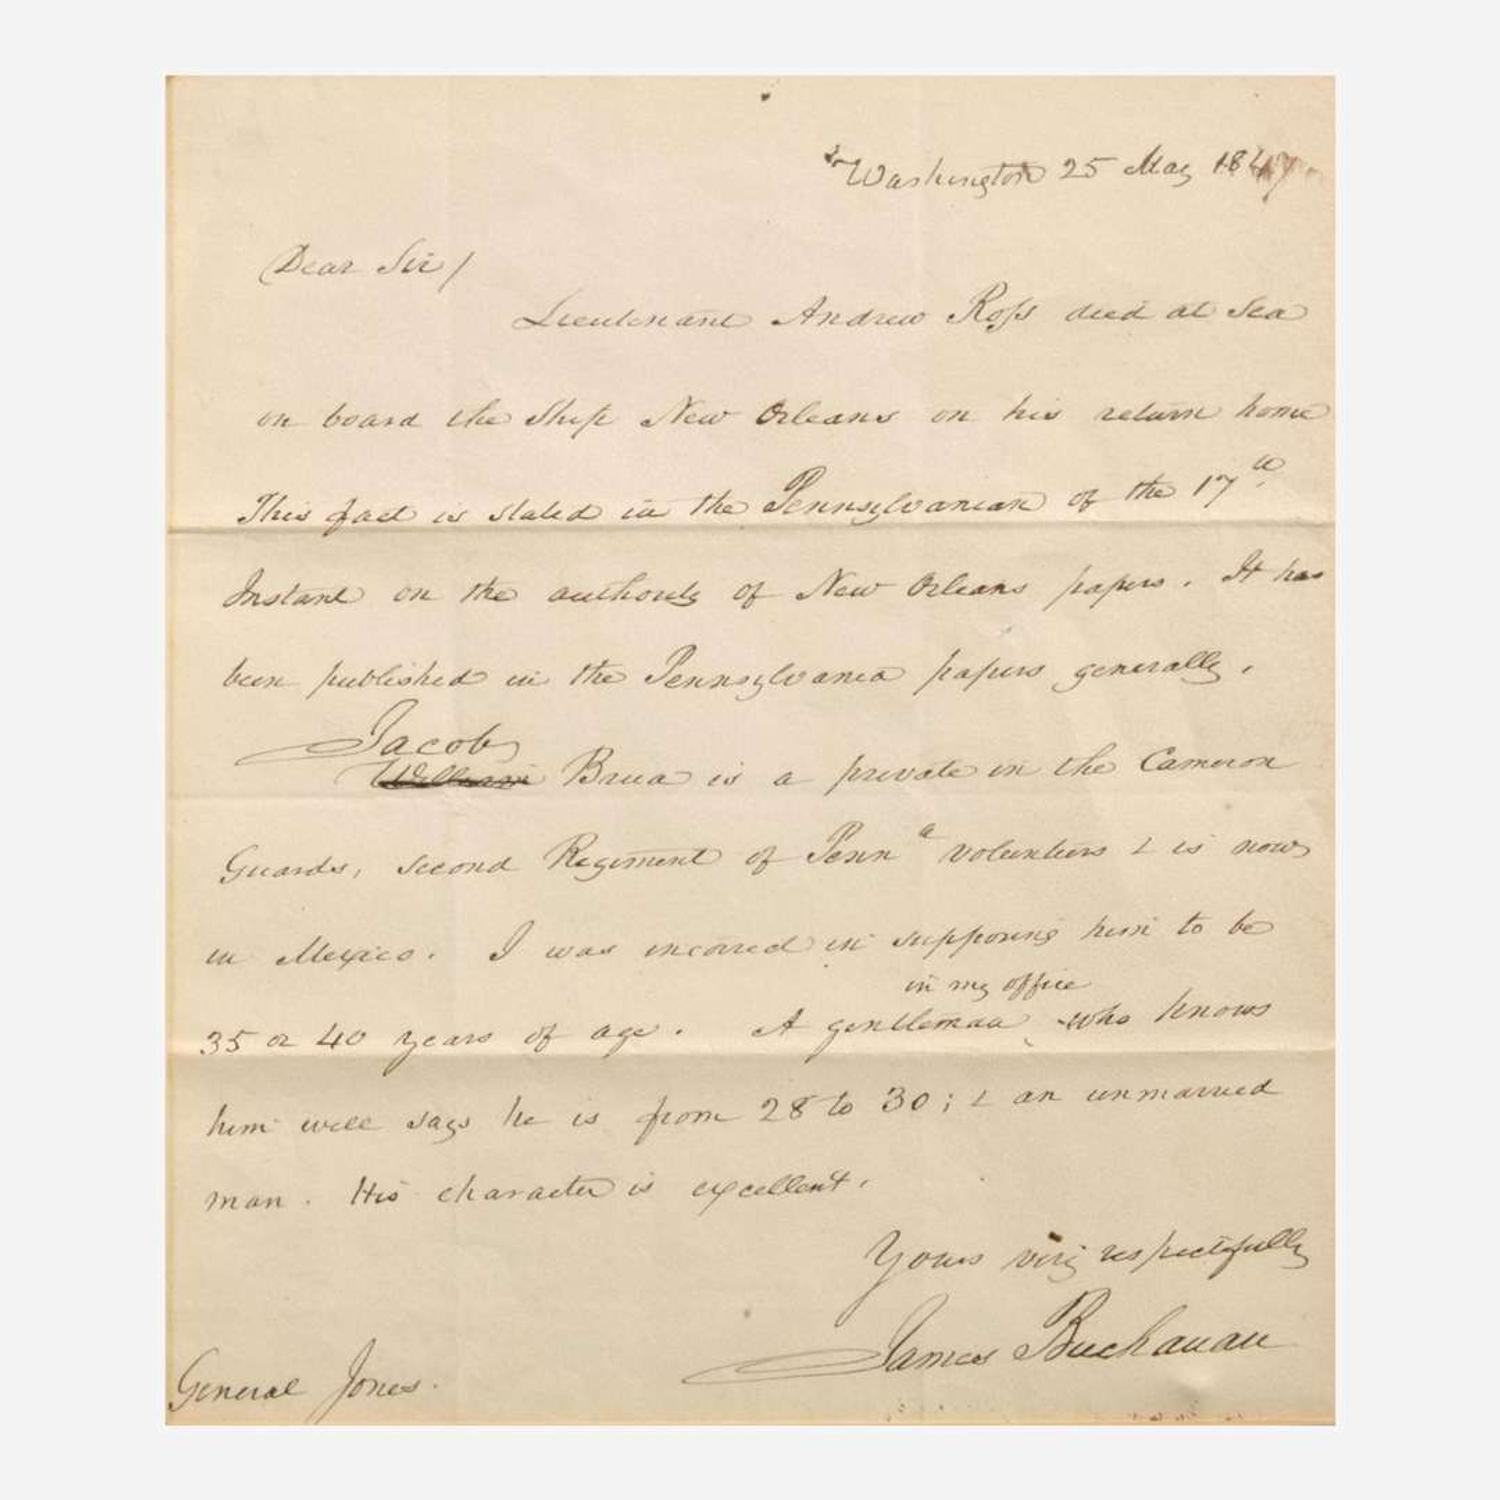 Washington 25 May 1847
Dear Sir/
Lieutenant Andrew Ross died at Sea
on board the Ship New Orleans on his return home
This fact is stated in the Pennsylvanian of the 17th
Instant on the authority of New Orleans papers. It has
been published in the Pennsylvania papers generally.
Jacob
William Brua is a private in the Cameron
Guards, second Regiment of Penna volunteers & is now
in Mexico. I was incorrect in supposing him to be
in my office
35 or 40 years of age. A gentleman, who knows
him well says he is from 28 to 30; & an unmarried
man. His character is excellent.
Yours very respectfully
James Buchanan
General Jones.